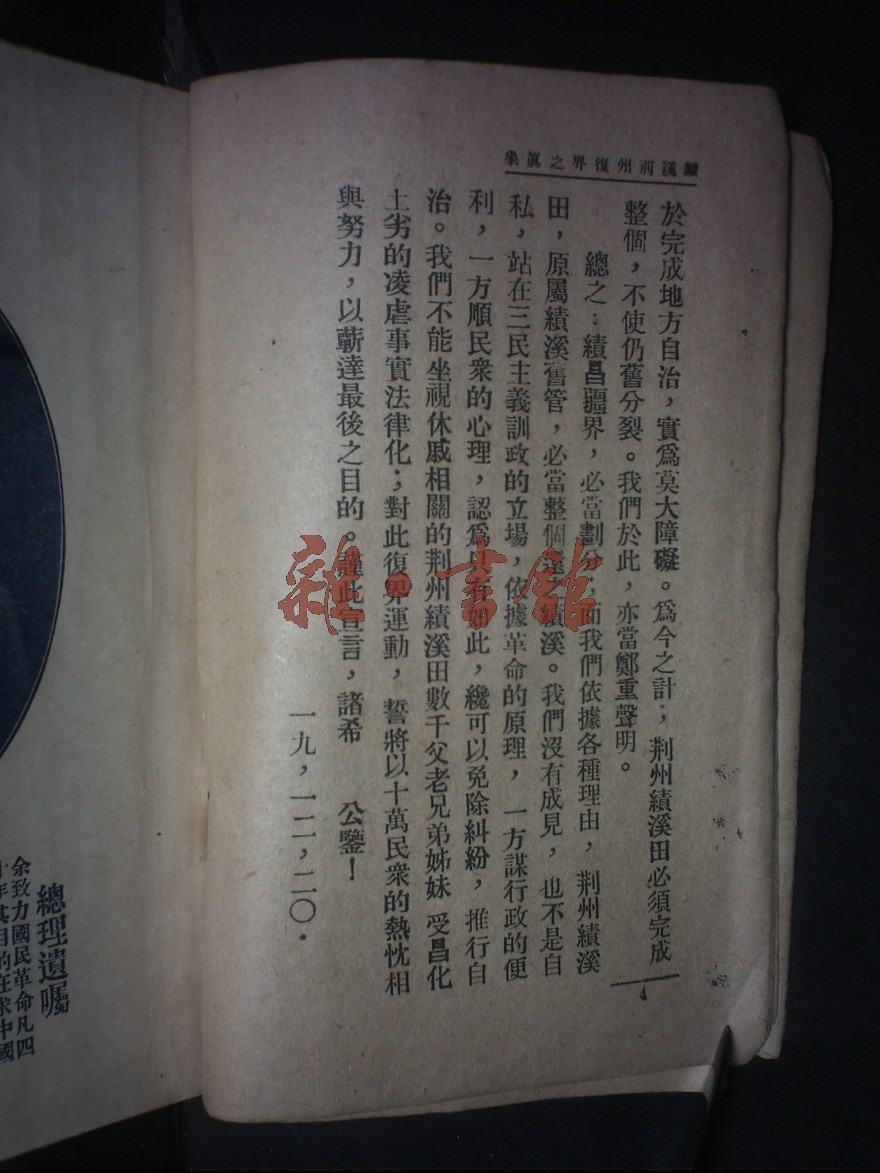 績溪荊州復界之眞集
於完成地方自治，實爲莫大障礙。爲今之計；荆州績溪田必須完成
整個，不使仍舊分裂。我們於此，亦當鄭重聲明。
總之：績昌疆界，必當劃分；而我們依據各種理由，荆州績溪
田，原屬績溪舊管，必當整個還之績溪。我們沒有成見，也不是自
私，站在三民主義訓政的立場，依據革命的原理，一方謀行政的便
利，一方順民衆的心理，認爲只有如此，纔可以免除糾紛，推行自
治。我們不能坐視休戚相關的荆州績溪田數千父老兄弟姊妹 受昌化
土劣的凌虐事實法律化；對此復界運動，誓將以十萬民衆的熱忱相
與努力，以蘄達最後之目的。謹此宣言，諸希 公鑒！
一九，一二，二〇．
4
總理遺囑
余致力國民革命凡四
十年其目的在求中國
雜·書館